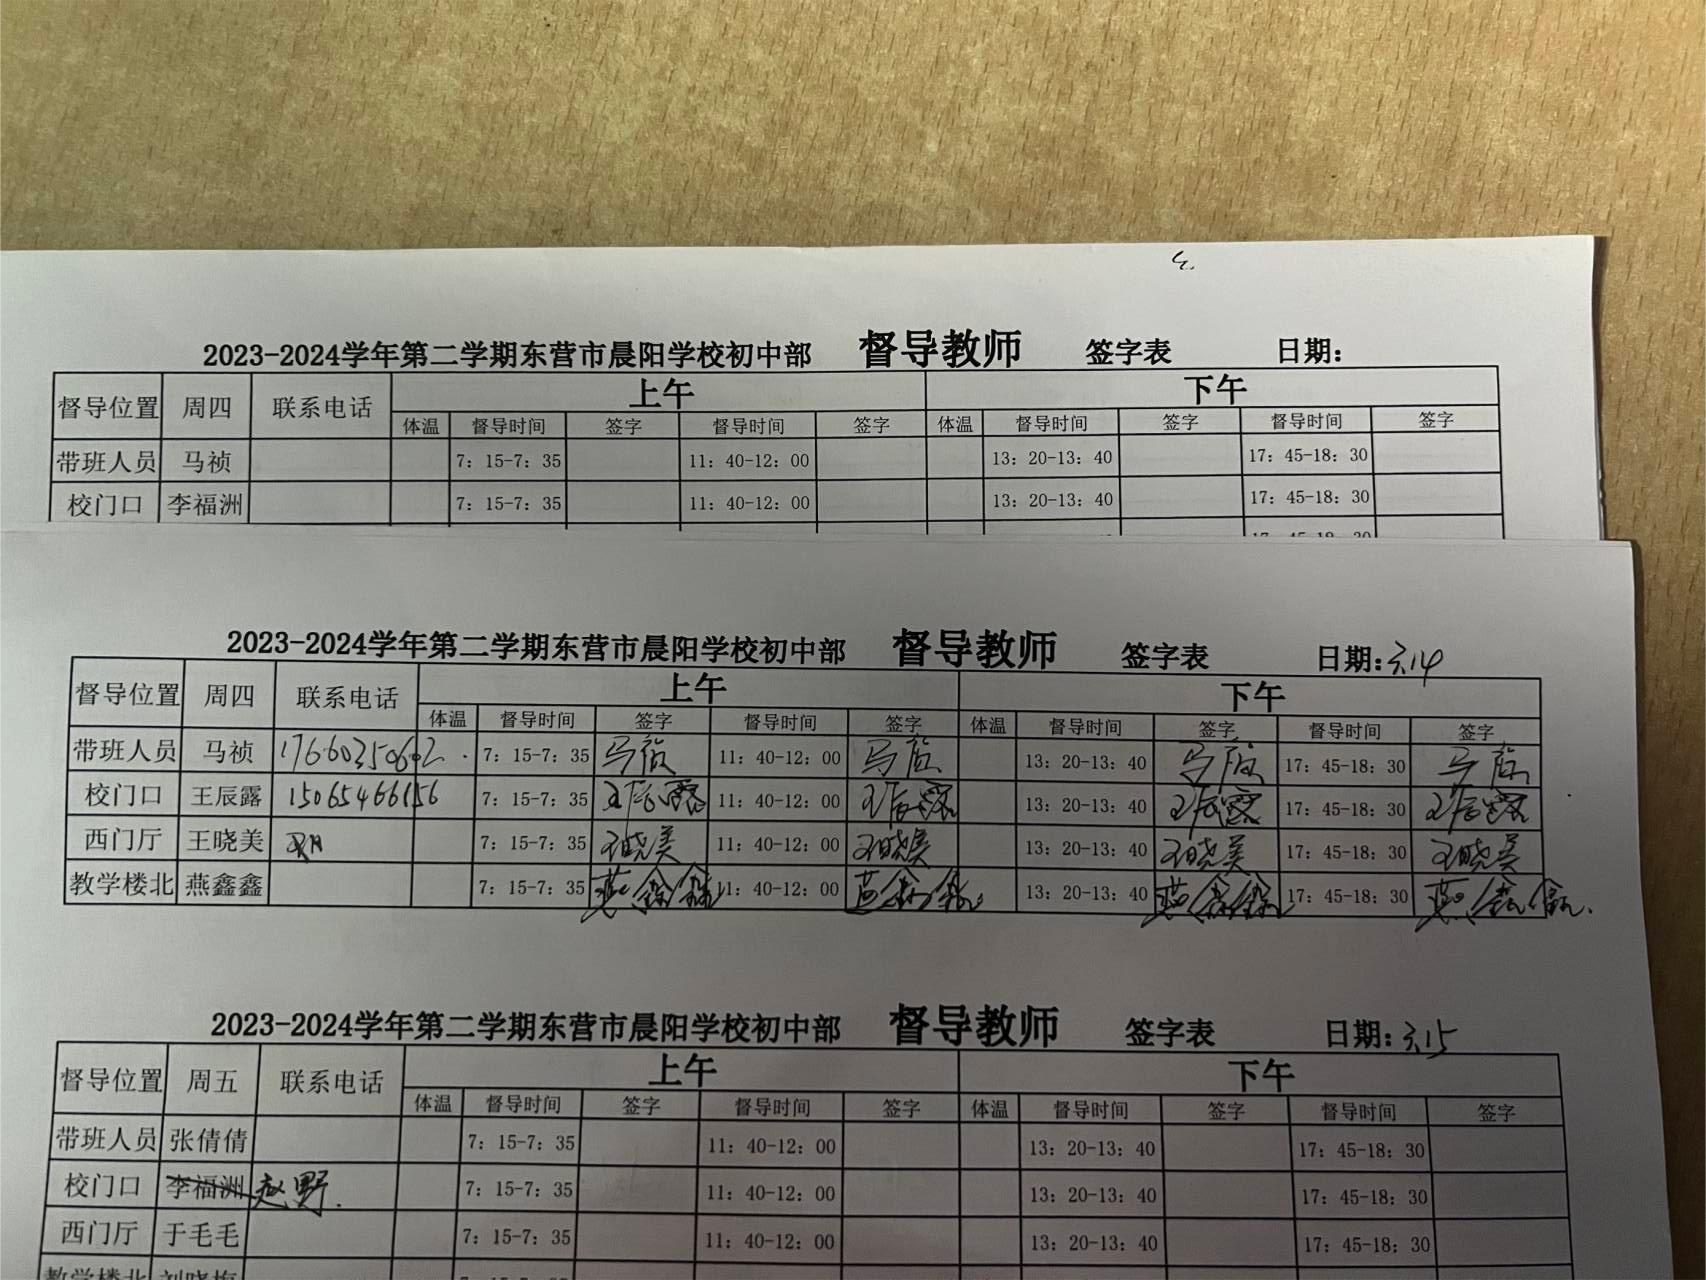 2023-2024学年第二学期东营市晨阳学校初中部 督导教师 签字表 日期:
督导位置 周四 联系电话 上午 下午
体温 督导时间 签字 督导时间 签字 体温 督导时间 签字 督导时间 签字
带班人员 马祯 7: 15-7: 35 11: 40-12: 00 13: 20-13: 40 17: 45-18: 30
校门口 李福洲 7: 15-7: 35 11: 40-12: 00 13: 20-13: 40 17: 45-18: 30
2023-2024学年第二学期东营市晨阳学校初中部 督导教师 签字表 日期:3.14
督导位置 周四 联系电话 上午 下午
体温 督导时间 签字 督导时间 签字 体温 督导时间 签字 督导时间 签字
带班人员 马祯 17660350602 7: 15-7: 35 马祯 11: 40-12: 00 马祯 13: 20-13: 40 马祯 17: 45-18: 30 马祯
校门口 王辰露 15065466156 7: 15-7: 35 王辰露 11: 40-12: 00 王辰露 13: 20-13: 40 王辰露 17: 45-18: 30 王辰露
西门厅 王晓美 7: 15-7: 35 王晓美 11: 40-12: 00 王晓美 13: 20-13: 40 王晓美 17: 45-18: 30 王晓美
教学楼北 燕鑫鑫 7: 15-7: 35 燕鑫鑫 11: 40-12: 00 燕鑫鑫 13: 20-13: 40 燕鑫鑫 17: 45-18: 30 燕鑫鑫
2023-2024学年第二学期东营市晨阳学校初中部 督导教师 签字表 日期:3.15
督导位置 周五 联系电话 上午 下午
体温 督导时间 签字 督导时间 签字 体温 督导时间 签字 督导时间 签字
带班人员 张倩倩 7: 15-7: 35 11: 40-12: 00 13: 20-13: 40 17: 45-18: 30
校门口 李福洲 赵野. 7: 15-7: 35 11: 40-12: 00 13: 20-13: 40 17: 45-18: 30
西门厅 于毛毛 7: 15-7: 35 11: 40-12: 00 13: 20-13: 40 17: 45-18: 30
教学楼北 刘晓梅